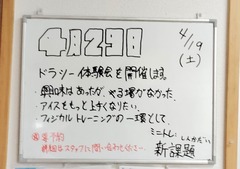 4月29日
4/19
(土)
ドラシー体験会を開催します。
・興味はあったが、やる場がなかった。
・アイスをもっと上手くなりたい。
・フィジカルトレーニングの一環として、
ミニトレ:しんかだい
※要予約
詳細はスタッフに問い合わせください
新課題